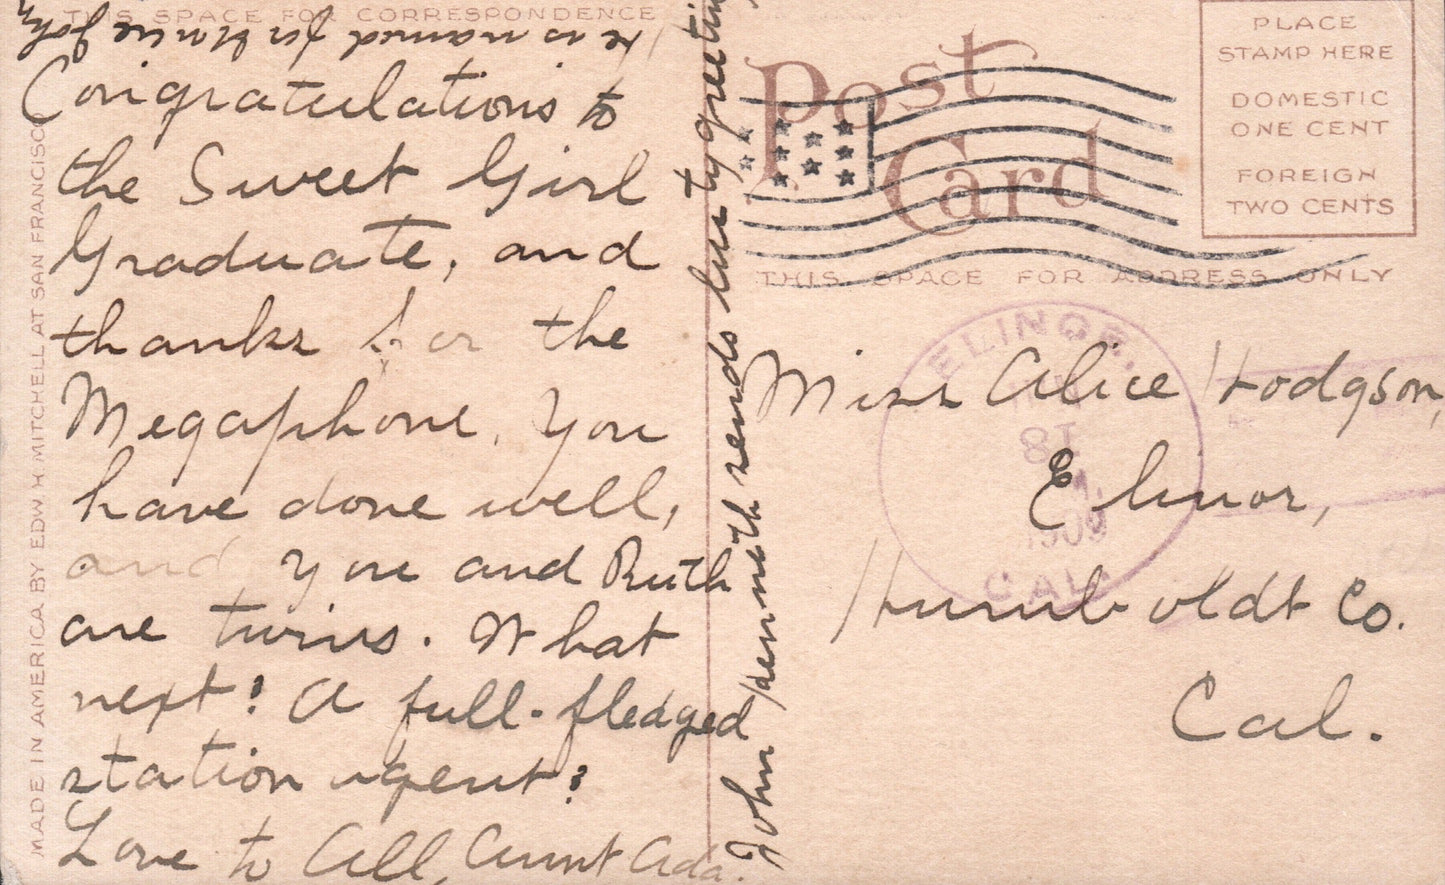 THIS SPACE FOR CORRESPONDENCE
Congratulations to
the Sweet Girl
Graduate, and
thanks for the
Megaphone. You
have done well,
and you and Ruth
are twins. What
next? A full-fledged
station agent?
Love to All, Aunt Ada.
John Kenneth sends lusty greeting
He is named for Uncle John
MADE IN AMERICA BY EDW. H. MITCHELL AT SAN FRANCISCO
Post
Card
PLACE
STAMP HERE
DOMESTIC
ONE CENT
FOREIGN
TWO CENTS
THIS SPACE FOR ADDRESS ONLY
ELINOR,
1909
CAL.
Miss Alice Hodgson,
Elinor,
Humboldt Co.
Cal.